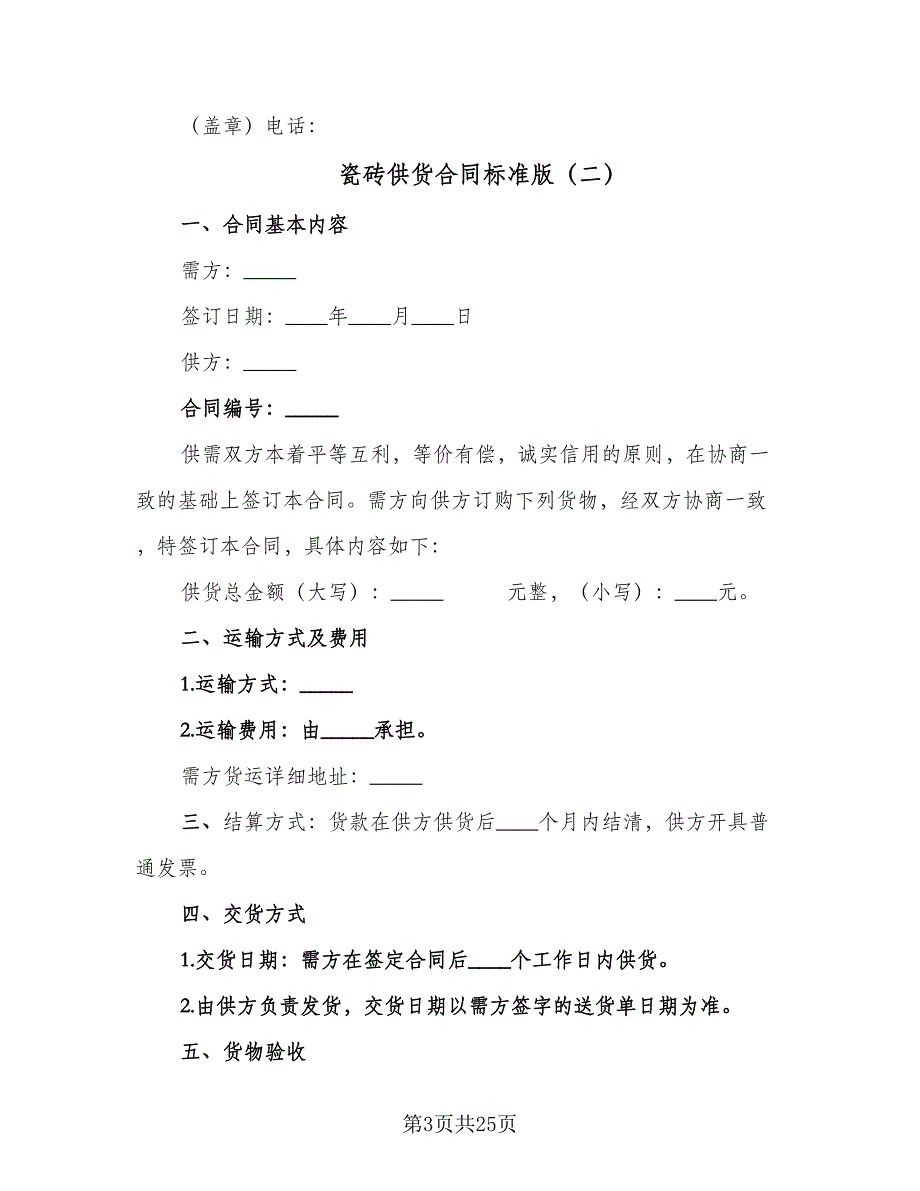 （盖章）电话：
瓷砖供货合同标准版（二）
一、合同基本内容
需方：_____
签订日期：____年____月____日
供方：_____
合同编号：_____
供需双方本着平等互利，等价有偿，诚实信用的原则，在协商一
致的基础上签订本合同。需方向供方订购下列货物，经双方协商一致
，特签订本合同，具体内容如下：
供货总金额（大写）：_____　　　元整，（小写）：____元。
二、运输方式及费用
1.运输方式：_____
2.运输费用：由_____承担。
需方货运详细地址：_____
三、结算方式：货款在供方供货后____个月内结清，供方开具普
通发票。
四、交货方式
1.交货日期：需方在签定合同后____个工作日内供货。
2.由供方负责发货，交货日期以需方签字的送货单日期为准。
五、货物验收
第3页共25页